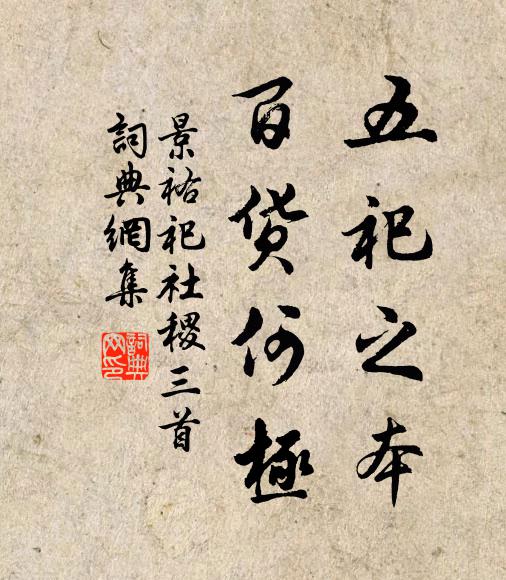 五祀之本
百货何極
景祐祀社稷三首
詞典網集
詞典網印